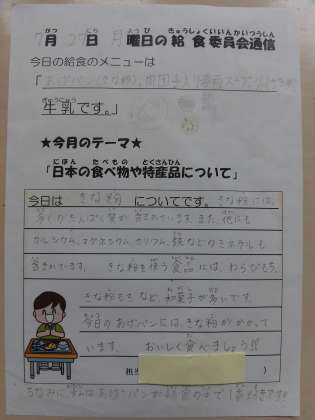 7月 27日 月曜日の給食委員会通信
今日の給食のメニューは
「あげパン(きな粉)、
牛乳です。」
★今月のテーマ★
「日本の食べ物や特産品について」
今日は きな粉 についてです。きな粉には、
多くのたんぱく質が含まれています。また、他にも
カルシウム、マグネシウム、カリウム、鉄などのミネラルも
含まれています。 きな粉を使う食品には、わらびもち、
きな粉もちなど、和菓子が多いです。
今日のあげパンには、きな粉がかかって
います。 おいしく食べましょう!!
担当
ちなみに私はあげパンが給食の中で1番好きです!